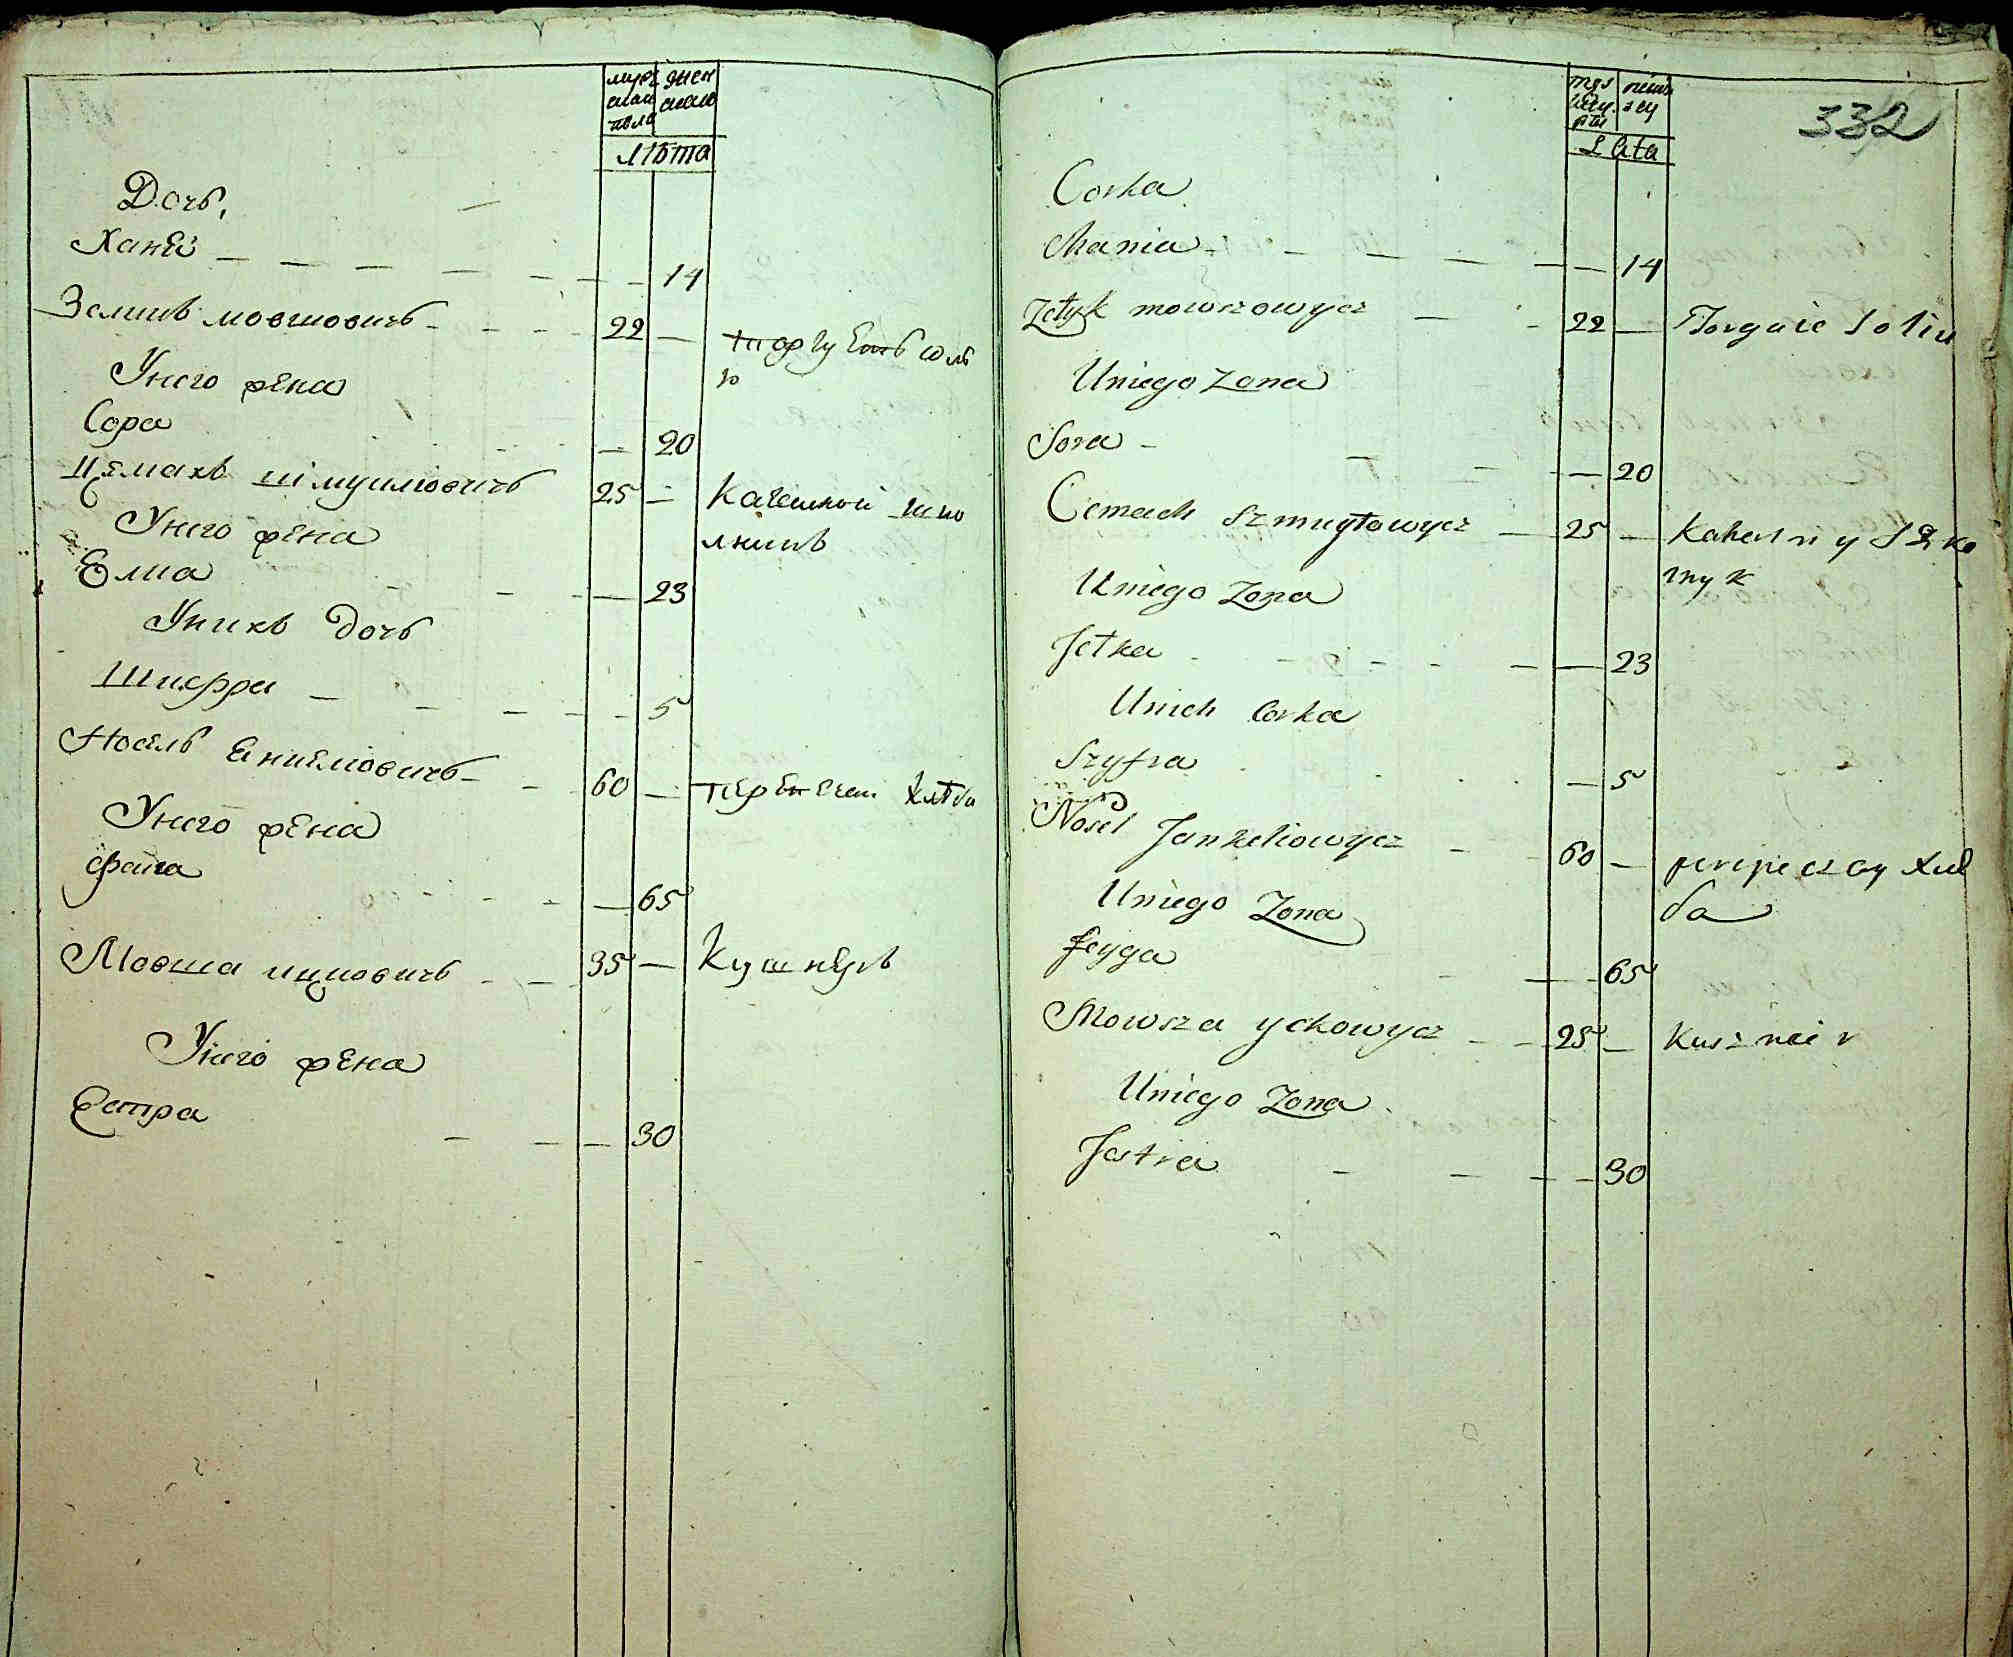 мужс жен
каго скаго
пола
Лѣта
Дочь,
Ханей 14
Зеликъ мовшовичъ 22 — торгуетъ соль
ю
Унего жена
Сора — 20
Цемахъ шмуиловичъ 25 — Кагалной шко
лникъ
Унего жена
Елка — 23
Унихъ дочь
Шифра 5
Носель Янкелювичъ 60 — перепечай хлѣба
Унего жена
Файга — 65
Мовша ицковичъ 35 — Кушнеръ
Унего жена
Естра — 30
332
Lata
Corka
Chania — 14
Zełyk mowszowycz 22 — Torguie Soliu
Uniego Zona
Sora — 20
Cemach Szmuyłowycz — 25 — Kahalny Szko
lnyk
Uniego Zona
Jetka — 23
Unich Corka
Szyfra — 5
Nosel Jankeliowycz 60 — perepeczay Chli
ba
Uniego Zona
feyga — 65
Mowsza yckowycz 25 — Kusznier
Uniego Zona
Jestra — 30